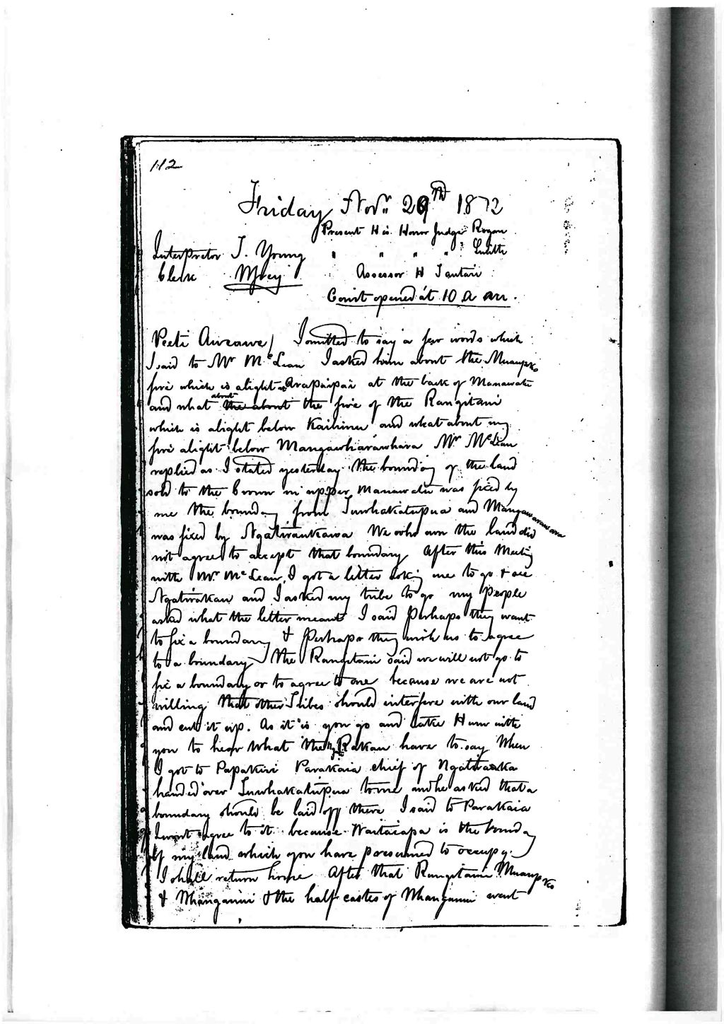 112
Friday Nov. 29th 1872
Present His Honor Judge Rogan
Interpreter J. Young " " " " Smith
Clerk Assessor H
Court opened at 10 a m.
Peeti Aweawe) I omitted to say a few words which
I said to Mr McLean I asked him about the Muaupoko
fire which is alight Arapaipai at the back of Manawatu
and what about the fire of the Rangitani
which is alight below Kaihinu and what about my
fire alight below Mangawharawhara Mr McLean
replied as I stated yesterday the boundary of the land
sold to the Crown in upper Manawatu was fixed by
me the boundary from and
was fixed by Ngatiraukawa We who own the land did
not agree to accept that boundary After this Meeting
with Mr McLean I got a letter asking me to go & see
and I asked my tribe to go my People
asked what the letter meant I said Perhaps they want
to fix a boundary & Perhaps they wish us to agree
to a boundary The Rangitani said we will not go to
fix a boundary or to agree to one because we are not
willing that other Tribes should interfere with our land
and cut it up. As it is you go and take with
you to hear what the have to say When
I got to Papakiri Parakaia chief of
handed over to me and he asked that a
boundary should be laid off there I said to Parakaia
I wont agree to it because is the boundary
of my land which you have presumed to occupy.
I shall return home After that Rangitani Muaupoko
& Whanganui & the half castes of Whanganui went